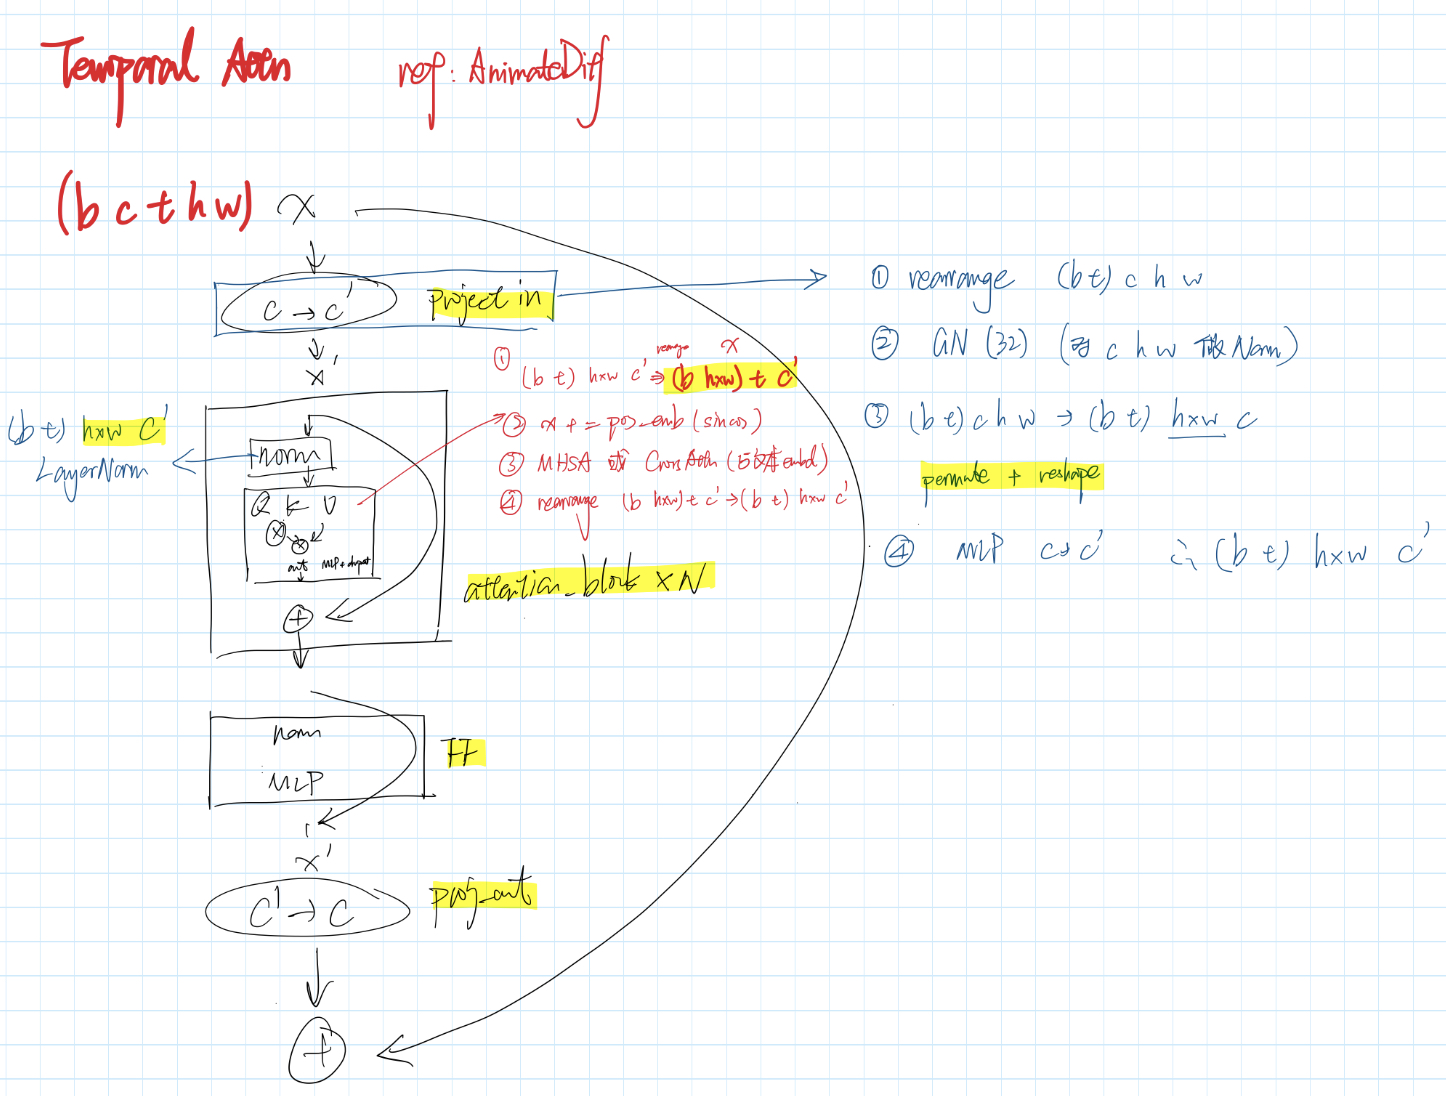 Temporal Attn
ref: AnimateDiff
(b c t h w) x
c → c'
project in
x'
① rearrange (b t) c h w
② GN (32) (对 c h w 做 Norm)
③ (b t) c h w → (b t) h×w c
permute + reshape
④ MLP c→c' ∴ (b t) h×w c'
(b t) h×w c'
LayerNorm
norm
Q K V
× ×
out MLP+dropout
+
rearrange x
① (b t) h×w c' ⇒ (b h×w) t c'
② x += pos_emb (sincos)
③ MHSA 或 CrossAttn (与文本embd)
④ rearrange (b h×w) t c' → (b t) h×w c'
attention_block × N
norm
MLP
FF
x'
c' → c
proj_out
+